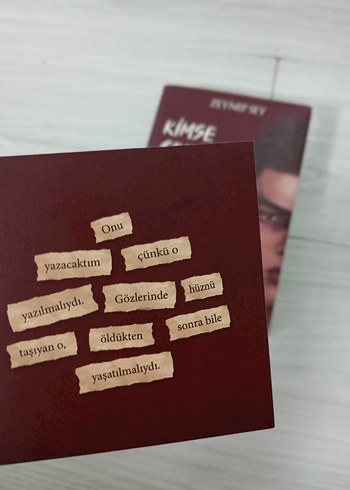 ZEYNEP SEY
KİMSE
Onu
yazacaktım çünkü o
yazılmalıydı. Gözlerinde hüznü
taşıyan o, öldükten sonra bile
yaşatılmalıydı.